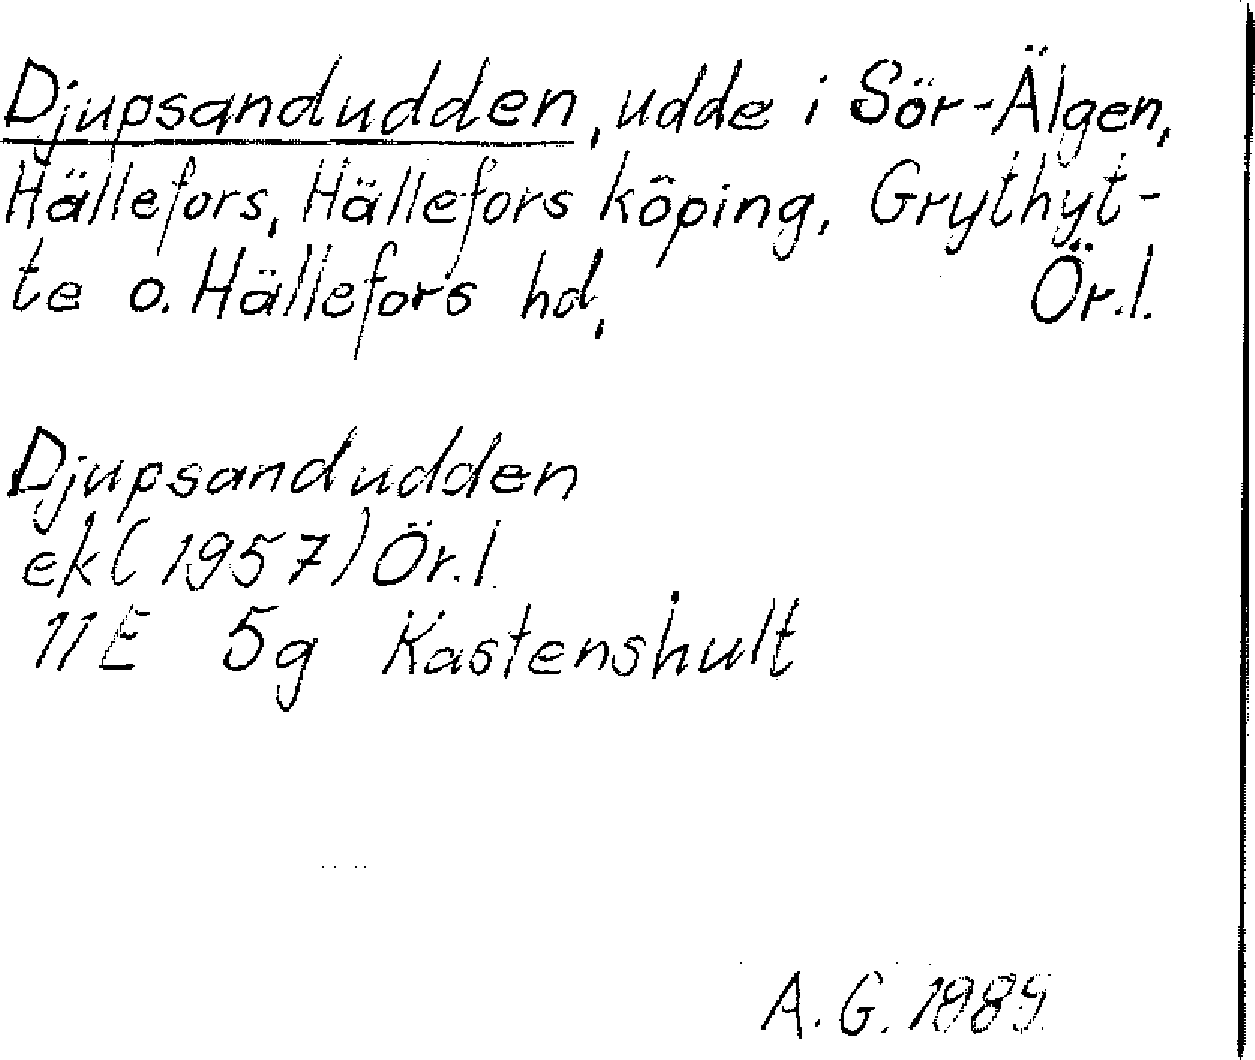 Djupsandudden, udde i Sör-Älgen,
Hällefors, Hällefors köping, Grythyt-
te o. Hällefors hd, Ör.l.
Djupsandudden
ek (1957) Ör.l.
11E 5g Kastenshult
A.G. 1989